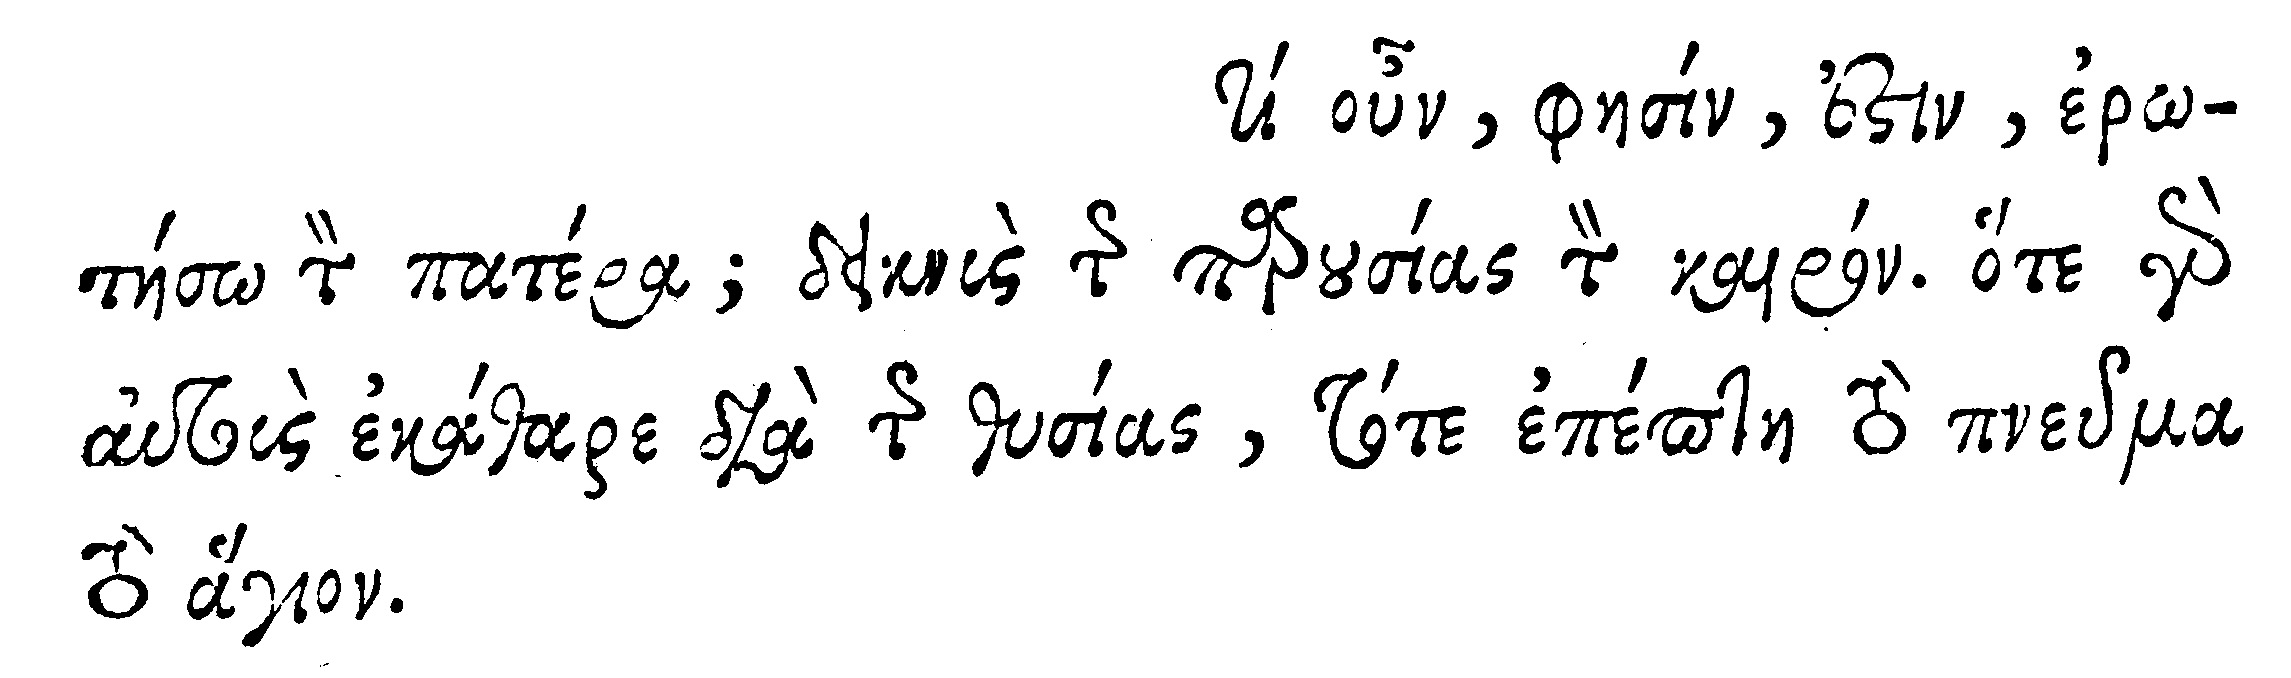 τί οὖν, φησίν, ἐστιν, ἐρω-
τήσω τὸν πατέρα; δείκνυσι τῆς παρουσίας τὸν καιρόν. ὅτε γὰρ
αὐτοὺς ἐκάθαρε διὰ τῆς θυσίας, τότε ἐπέπτη τὸ πνεῦμα
τὸ ἅγιον.